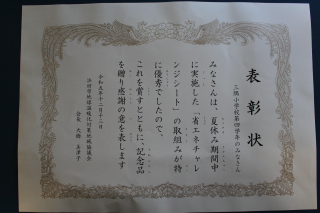 表彰状
三隅小学校第四学年のみなさん
みなさんは、夏休み期間中
に実施した「省エネチャレ
ンジシート」の取組みが特
に優秀でしたので、
これを賞すとともに、記念品
を贈り感謝の意を表します
令和五年十二月十二日
浜田市地球温暖化対策地域協議会
会長